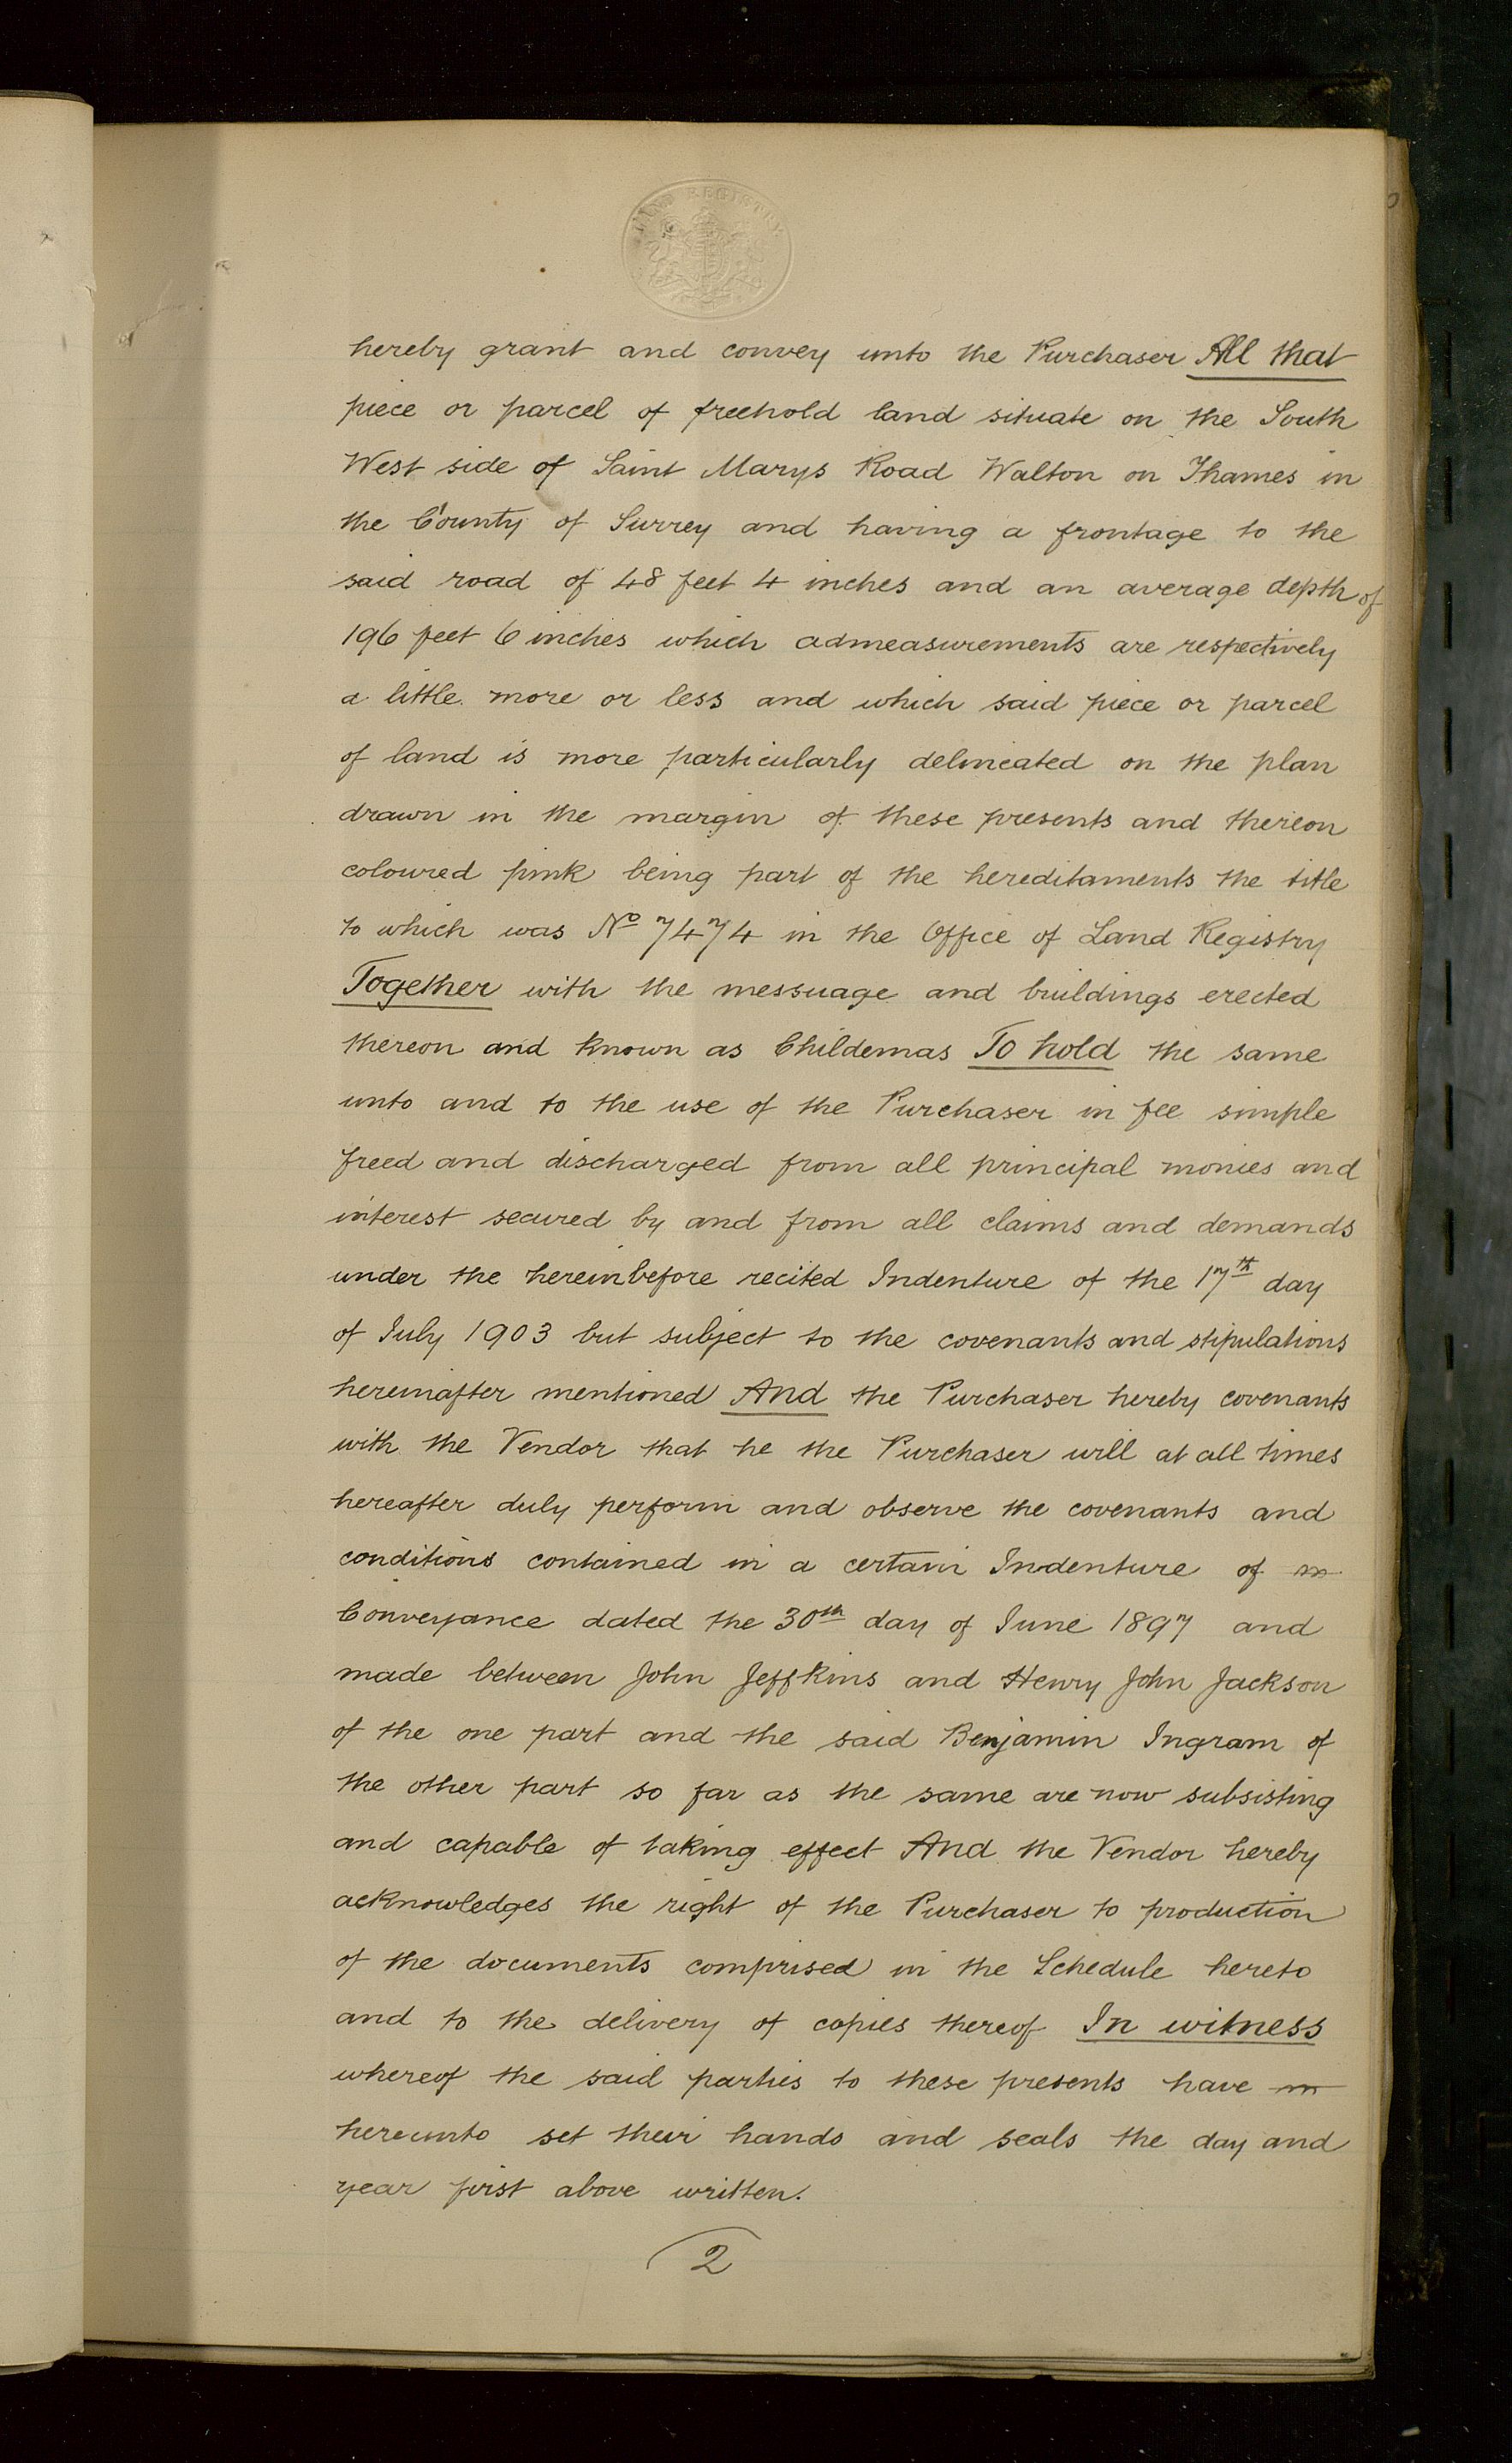 LAND REGISTRY
hereby grant and convey unto the Purchaser All that
piece or parcel of freehold land situate on the South
West side of Saint Marys Road Walton on Thames in
the County of Surrey and having a frontage to the
said road of 48 feet 4 inches and an average depth of
196 feet 6 inches which admeasurements are respectively
a little more or less and which said piece or parcel
of land is more particularly delineated on the plan
drawn in the margin of these presents and thereon
coloured pink being part of the hereditaments the title
to which was No 7474 in the Office of Land Registry
Together with the messuage and buildings erected
thereon and known as Childemas To hold the same
unto and to the use of the Purchaser in fee simple
freed and discharged from all principal monies and
interest secured by and from all claims and demands
under the hereinbefore recited Indenture of the 17th day
of July 1903 but subject to the covenants and stipulations
hereinafter mentioned And the Purchaser hereby covenants
with the Vendor that he the Purchaser will at all times
hereafter duly perform and observe the covenants and
conditions contained in a certain Indenture of
Conveyance dated the 30th day of June 1897 and
made between John Jeffkins and Henry John Jackson
of the one part and the said Benjamin Ingram of
the other part so far as the same are now subsisting
and capable of taking effect And the Vendor hereby
acknowledges the right of the Purchaser to production
of the documents comprised in the Schedule hereto
and to the delivery of copies thereof In witness
whereof the said parties to these presents have
hereunto set their hands and seals the day and
year first above written.
2